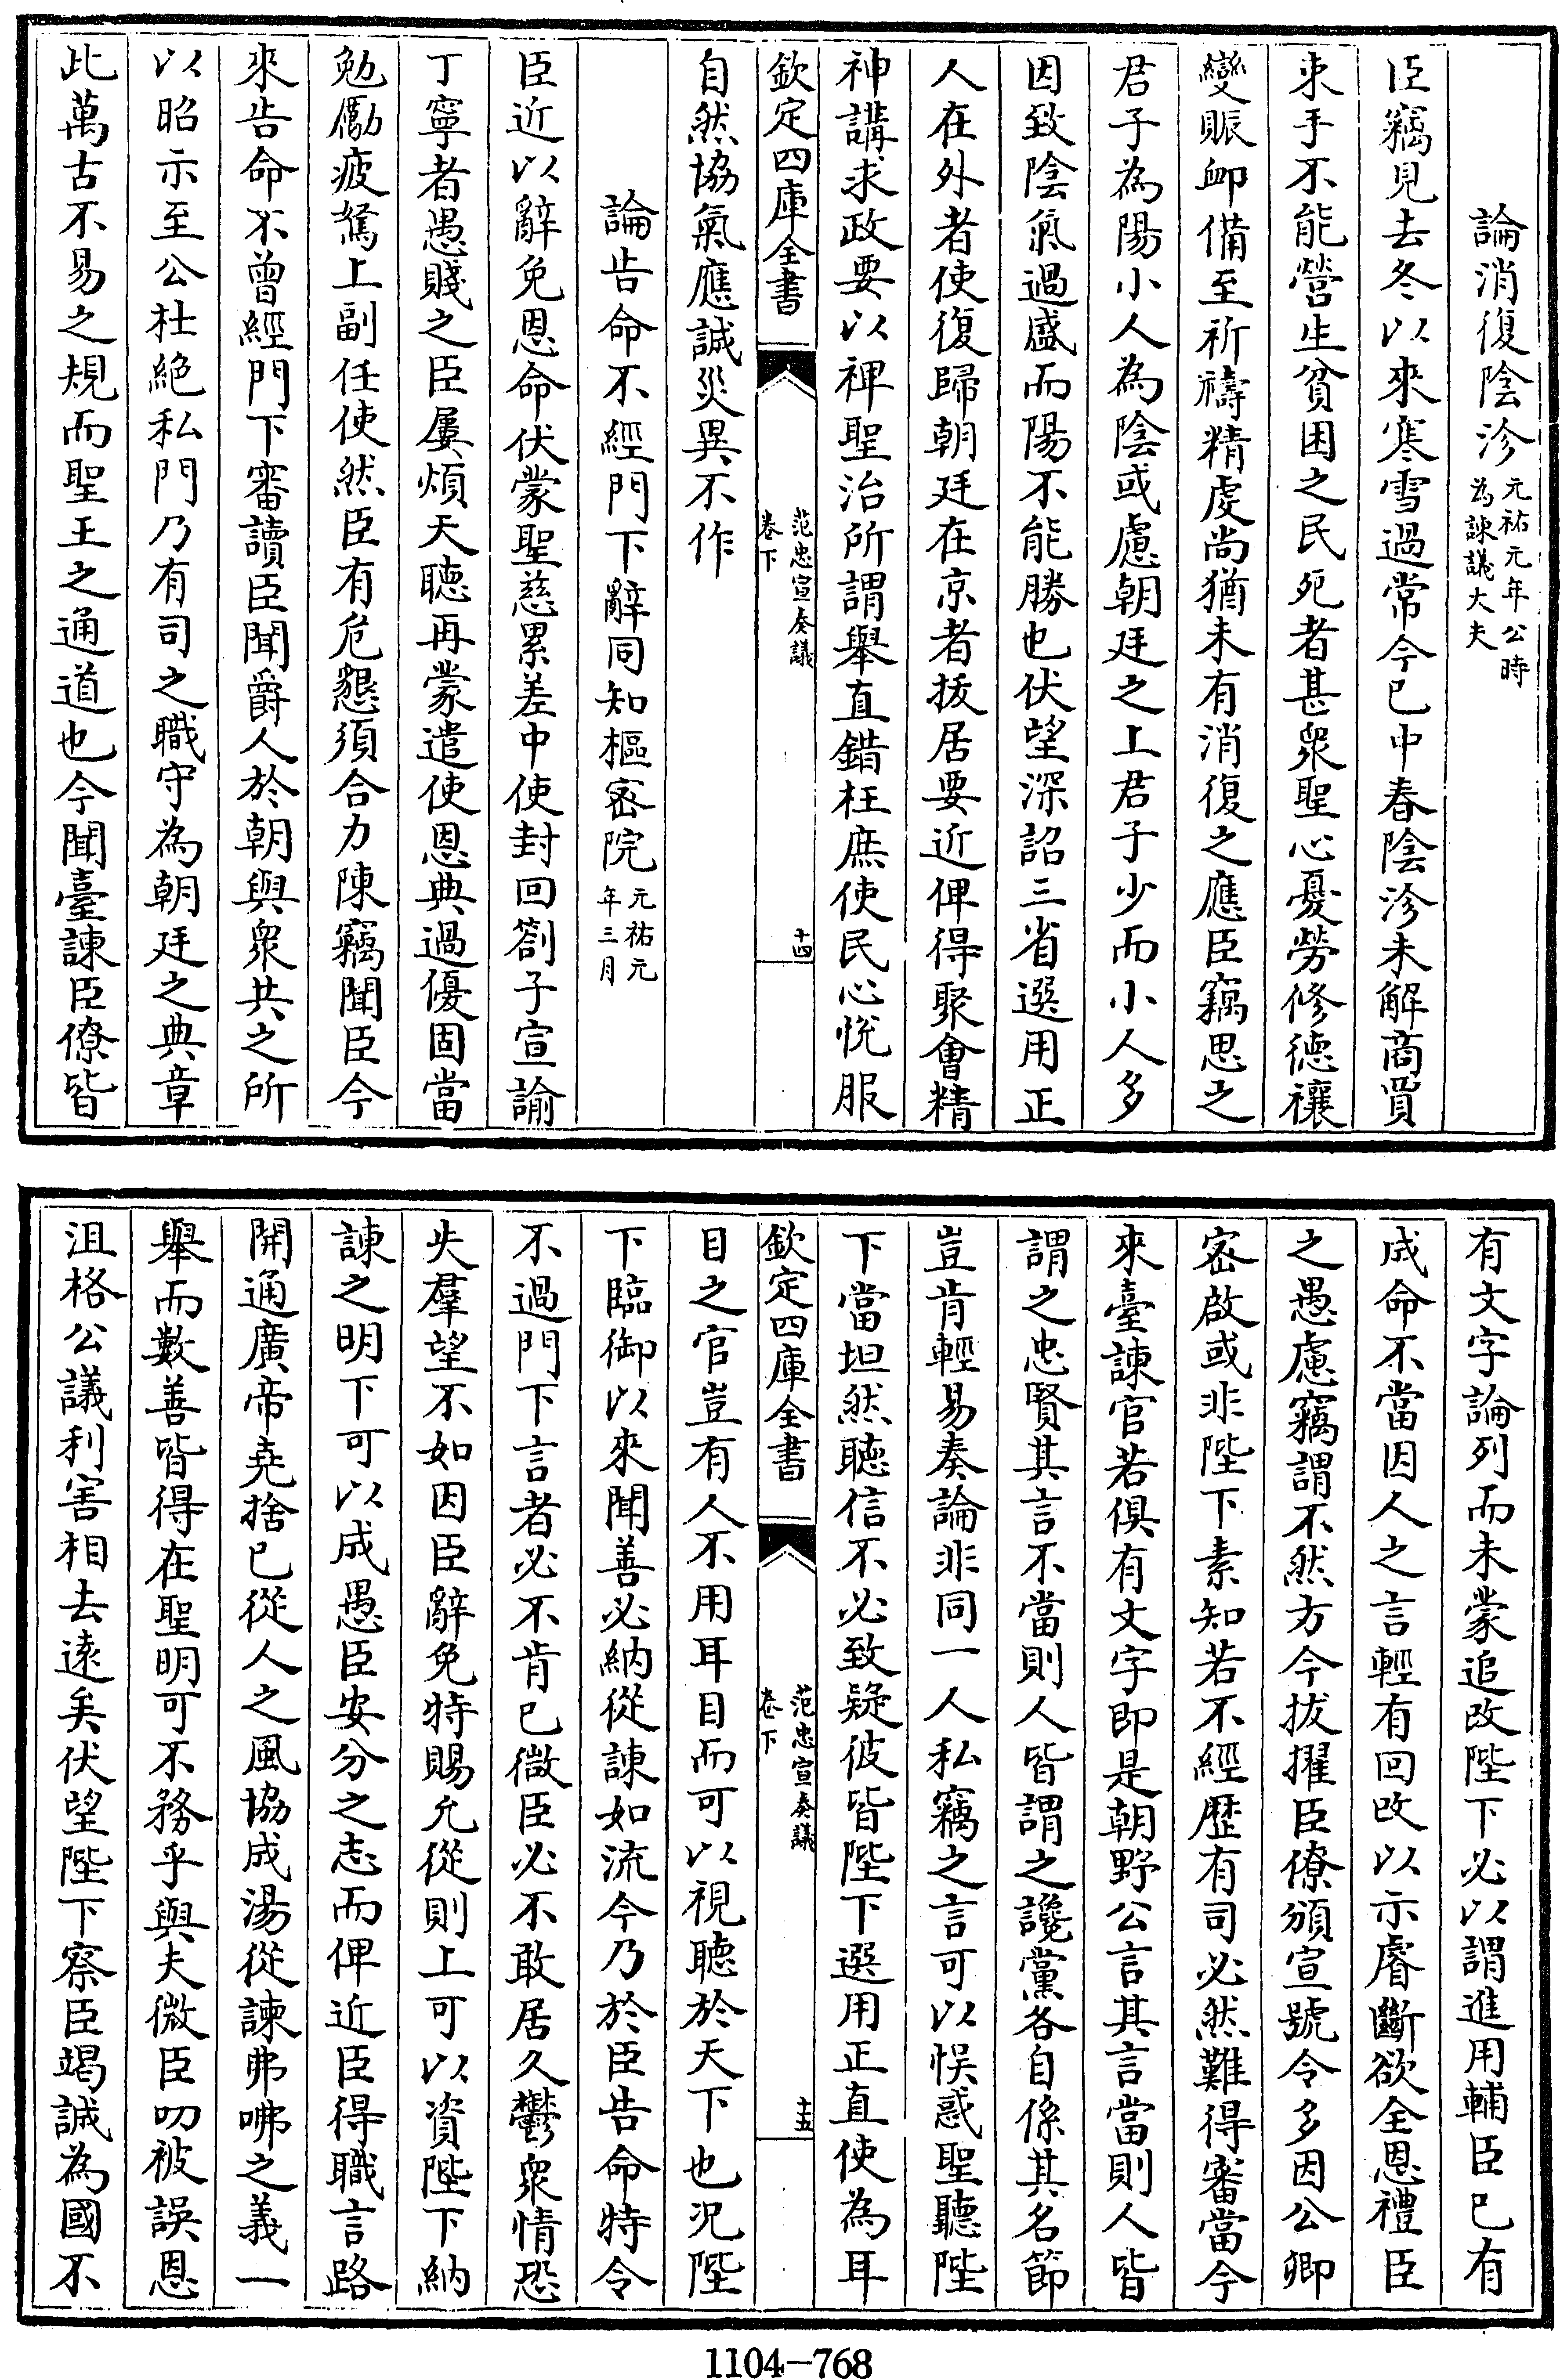 論消復陰沴元祐元年公時為諫議大夫
臣竊見去冬以來寒雪過常今已中春陰沴未解商賈
束手不能營生貧困之民死者甚衆聖心憂勞修徳禳
變賑䘏備至祈禱精虔尚猶未有消復之應臣竊思之
君子為陽小人為陰或慮朝廷之上君子少而小人多
因致陰氣過盛而陽不能勝也伏望深詔三省選用正
人在外者使復歸朝廷在京者拔居要近俾得聚會精
神講求政要以裨聖治所謂舉直錯枉庶使民心悅服
欽定四庫全書 范忠宣奏議 卷下 十四
自然協氣應誠災異不作
論告命不經門下辭同知樞密院元祐元年三月
臣近以辭免恩命伏蒙聖慈累差中使封回劄子宣諭
丁寧者愚賤之臣屢煩天聽再蒙遣使恩典過優固當
勉勵疲駑上副任使然臣有危懇須合力陳竊聞臣今
來告命不曾經門下審讀臣聞爵人於朝與衆共之所
以昭示至公杜絶私門乃有司之職守為朝廷之典章
此萬古不易之規而聖王之通道也今聞臺諫臣僚皆
有文字論列而未蒙追改陛下必以謂進用輔臣已有
成命不當因人之言輕有回改以示睿斷欲全恩禮臣
之愚慮竊謂不然方今拔擢臣僚頒宣號令多因公卿
密啟或非陛下素知若不經歷有司必然難得審當今
來臺諫官若俱有文字即是朝野公言其言當則人皆
謂之忠賢其言不當則人皆謂之讒黨各自係其名節
豈肯輕易奏論非同一人私竊之言可以悞惑聖聽陛
下當坦然聽信不必致疑彼皆陛下選用正直使為耳
欽定四庫全書 范忠宣奏議 卷下 十五
目之官豈有人不用耳目而可以視聽於天下也況陛
下臨御以來聞善必納從諫如流今乃於臣告命特令
不過門下言者必不肯已微臣必不敢居久鬱衆情恐
失羣望不如因臣辭免特賜允從則上可以資陛下納
諫之明下可以成愚臣安分之志而俾近臣得職言路
開通廣帝堯捨已從人之風協成湯從諫弗咈之義一
舉而數善皆得在聖明可不務乎與夫微臣叨被誤恩
沮格公議利害相去遠矣伏望陛下察臣竭誠為國不
1104-768